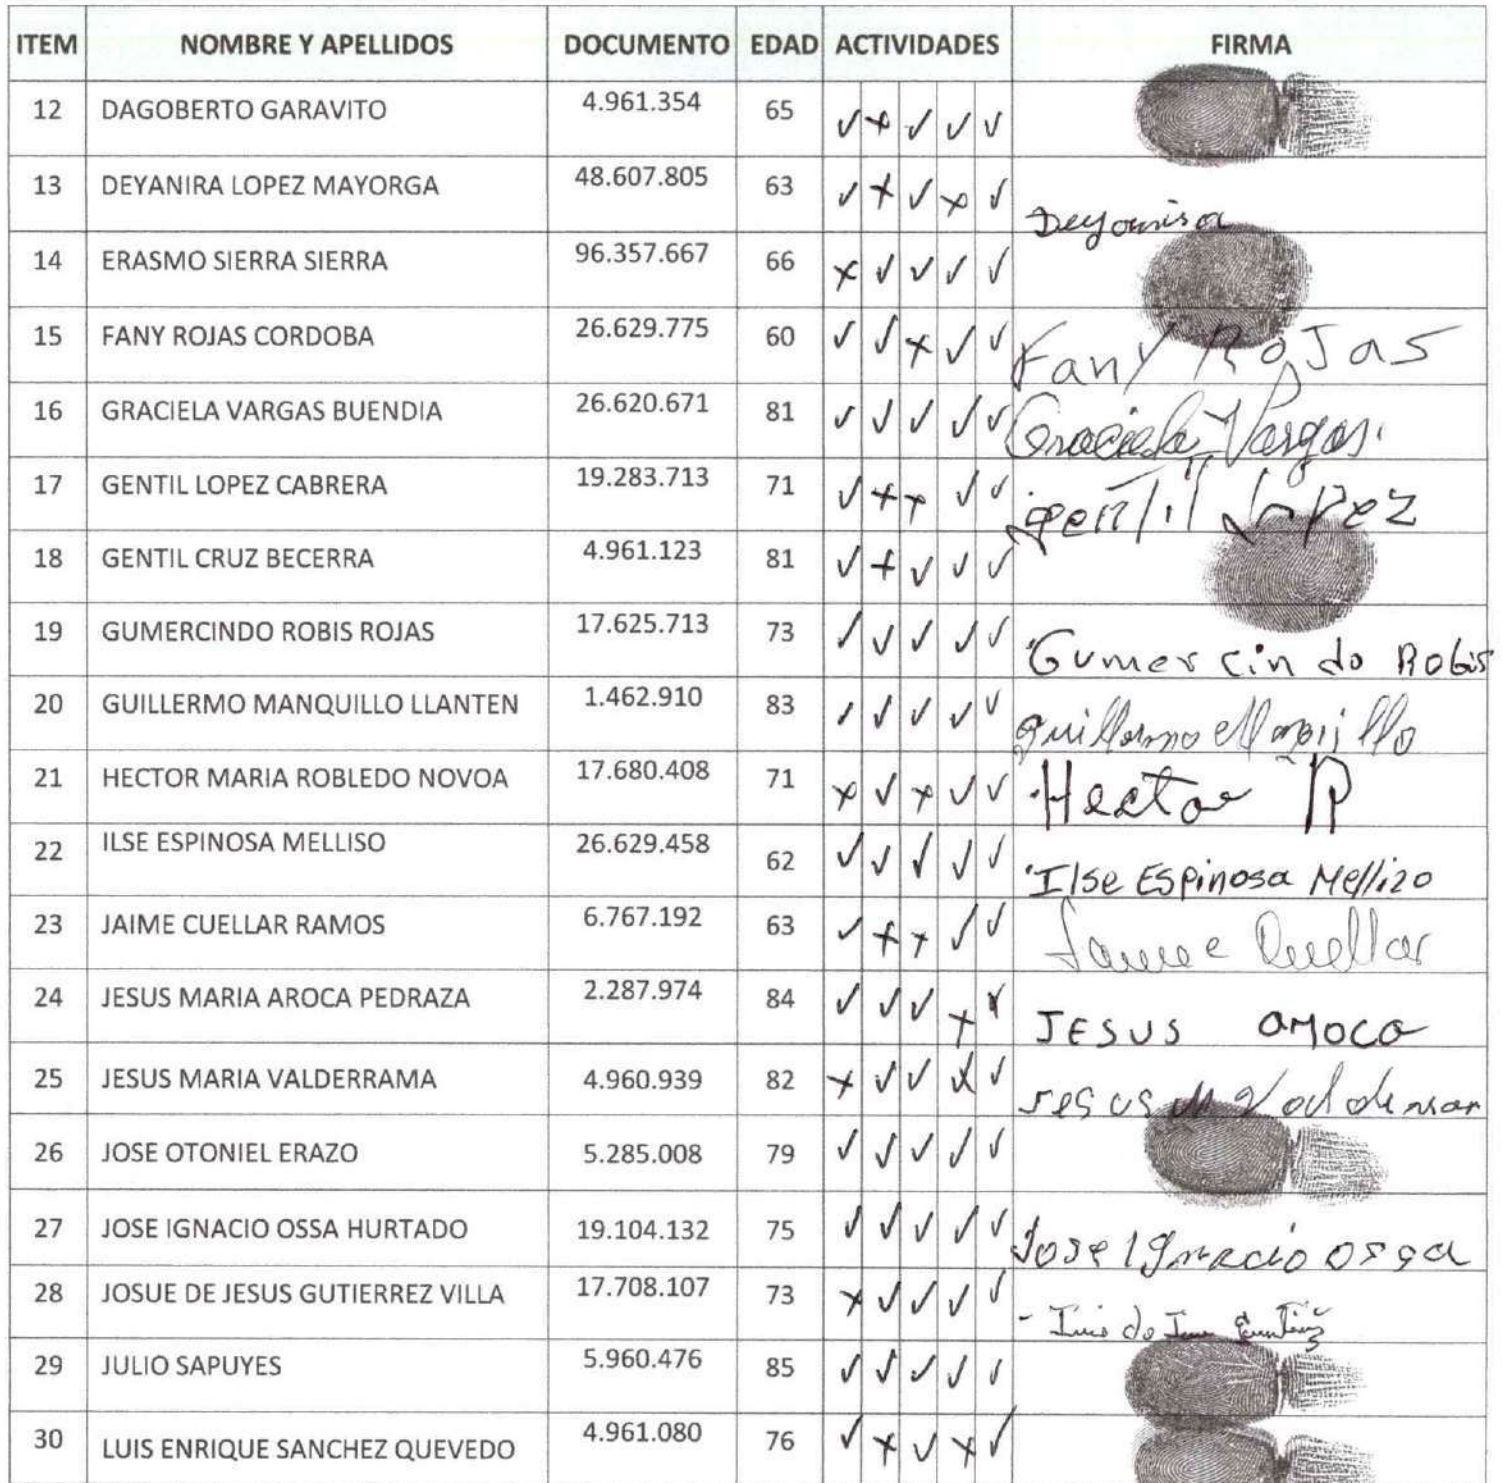 ITEM NOMBRE Y APELLIDOS DOCUMENTO EDAD ACTIVIDADES FIRMA
12 DAGOBERTO GARAVITO 4.961.354 65 ✓ x ✓ ✓ ✓
13 DEYANIRA LOPEZ MAYORGA 48.607.805 63 ✓ x ✓ x ✓ Deyanisa
14 ERASMO SIERRA SIERRA 96.357.667 66 x ✓ ✓ ✓ ✓
15 FANY ROJAS CORDOBA 26.629.775 60 ✓ ✓ x ✓ ✓ Fany Rojas
16 GRACIELA VARGAS BUENDIA 26.620.671 81 ✓ ✓ ✓ ✓ ✓ Graciela Vargas.
17 GENTIL LOPEZ CABRERA 19.283.713 71 ✓ x x ✓ ✓ gentil Lopez
18 GENTIL CRUZ BECERRA 4.961.123 81 ✓ x ✓ ✓ ✓
19 GUMERCINDO ROBIS ROJAS 17.625.713 73 ✓ ✓ ✓ ✓ ✓ Gumercindo Robis
20 GUILLERMO MANQUILLO LLANTEN 1.462.910 83 ✓ ✓ ✓ ✓ ✓ Guillermo
21 HECTOR MARIA ROBLEDO NOVOA 17.680.408 71 x ✓ x ✓ ✓ Hector R
22 ILSE ESPINOSA MELLISO 26.629.458 62 ✓ ✓ ✓ ✓ ✓ Ilse Espinosa Mellizo
23 JAIME CUELLAR RAMOS 6.767.192 63 ✓ x x ✓ ✓ Jaime Cuellar
24 JESUS MARIA AROCA PEDRAZA 2.287.974 84 ✓ ✓ ✓ x x JESUS aroca
25 JESUS MARIA VALDERRAMA 4.960.939 82 x ✓ ✓ x ✓ Jesus M
26 JOSE OTONIEL ERAZO 5.285.008 79 ✓ ✓ ✓ ✓ ✓
27 JOSE IGNACIO OSSA HURTADO 19.104.132 75 ✓ ✓ ✓ ✓ ✓ Jose Ignacio Ossa
28 JOSUE DE JESUS GUTIERREZ VILLA 17.708.107 73 x ✓ ✓ ✓ ✓
29 JULIO SAPUYES 5.960.476 85 ✓ ✓ ✓ ✓ ✓
30 LUIS ENRIQUE SANCHEZ QUEVEDO 4.961.080 76 ✓ x ✓ x ✓